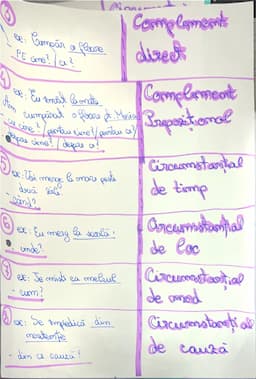 ③
ex: Cumpăr o floare
PE cine? / ce?
Complement
direct
④
ex: Eu
Am cumpărat o floare pt. Maria
cu cine? / pentru cine? / pentru ce? /
despre cine? / despre ce?
Complement
Prepozițional
⑤
ex: Voi merge la mare peste
două
- când?
Circumstanțial
de timp
⑥
ex: Eu merg la școală!
- unde?
Circumstanțial
de loc
⑦
ex: Se mișcă ca melcul
- cum?
Circumstanțial
de mod
⑧
ex: Se împiedică din
neatenție
- din ce cauză?
Circumstanțial
de cauză